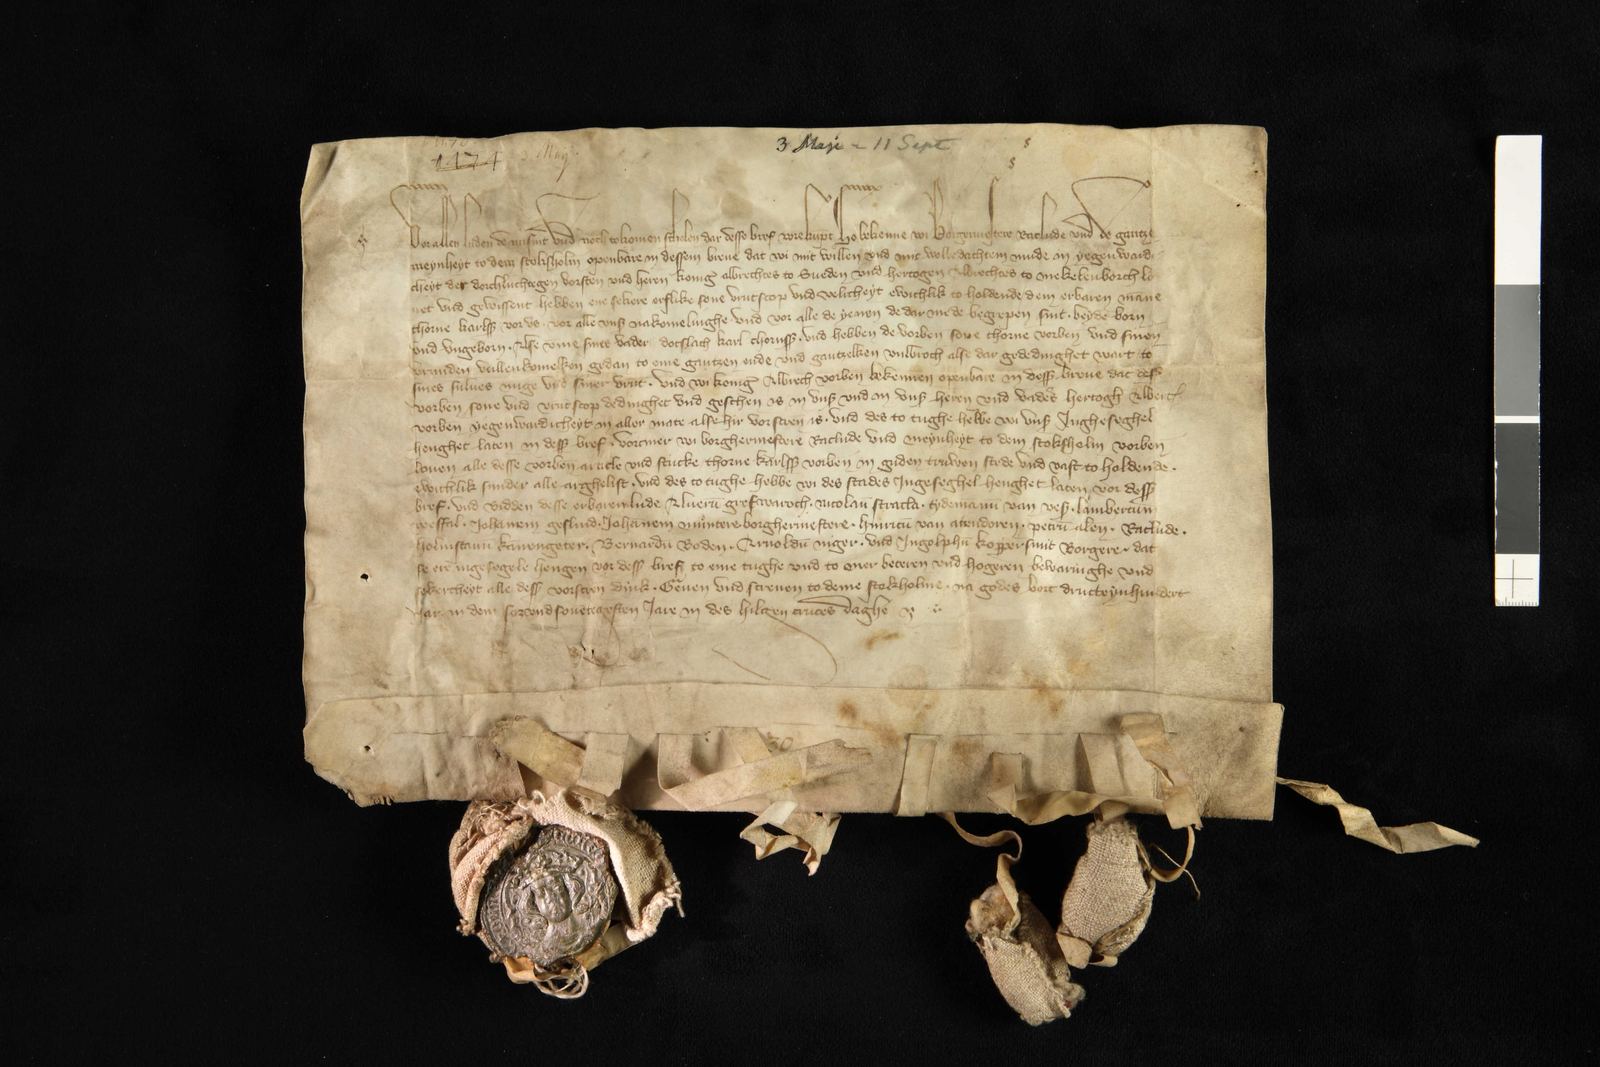 1474 3 Maij
3 Maji – 11 Sept
Vor allen luden de nu sint vnd noch tokomen scholen dar desse bref vore kumpt So bekenne wi Borgermestere Raclude vnd de gantze
meynheyt to dem stokisholm openbare in dessem breue dat wi mit willen vnd mit wolledachtem mude in yegenwardi-
cheyt der dorchluchtegen vorsten vnd heren konig albrechtes to Sueden vnd hertogen Albrechtes to mekelenborch
vnd gewissent hebben ene sekere orflike sone vruntscop vnd velicheyt ewichlik to holdende dem erbaren manne
thorne karlss vor vs. vor alle vnse nakomelinghe. vnd vor alle de yenen de dar mede begrepen sint. beyde born
vnd vngeborn. Alse vme sines vader dotslach karl thornss. vnd hebben de vorben sone thorne vorben vnd sinen
vrunden vullenkomelken gedan to eme gantzen ende vnd gantzelken vulbroch alse dar gededinghet wart to
sines sulues nuge vnd siner vrunt. vnd wi konig Albrech vorben bekennen openbare in dess breue dat desse
vorben sone vnd vruntscop dedinghet vnd geschen is in vnss vnd in vnss heren vnd vaders hertogh Albert
vorben yegenwardicheyt in aller mate alse hir vorscreuen is. vnd des to tughe hebbe wi vnss Jngheseghel
henghet laten in dess bref. vortmer wi borghermestere Raclude vnd meynheyt to dem stoksholm vorben
louen alle desse vorben article vnd stucke thorne karlss vorben in guden truwen stede vnd vast to holdende.
ewichlik sunder alle arghelist. vnd des to tughe hebbe wi des stades Jngeseghel henghet laten vor dess
bref. vnd bidden desse erbaren lude Aluerum grefwaroch. nicolaum stracla. tydemann van ves. lambertum
vesfal. Johanem geslind. Johanem muntere borghermestere. hinricum van atendoren. petrum alen. Raclude.
holmstanum kanengeter. Bernardum Boden. Arnoldum niger. vnd Jngolphum kopper smit Borgere. dat
se ere ingesegele hengen vor dess bref to ene tughe vnd to mer beteren vnd hogeren bewaringhe vnd
sekercheyt alle dess vorscreuen dink. Geuen vnd screuen to deme stokholme. na godes bort drutteynhundert
Jar in dem seuendeseuentegesten Jare in des hilgen cruces daghe
30